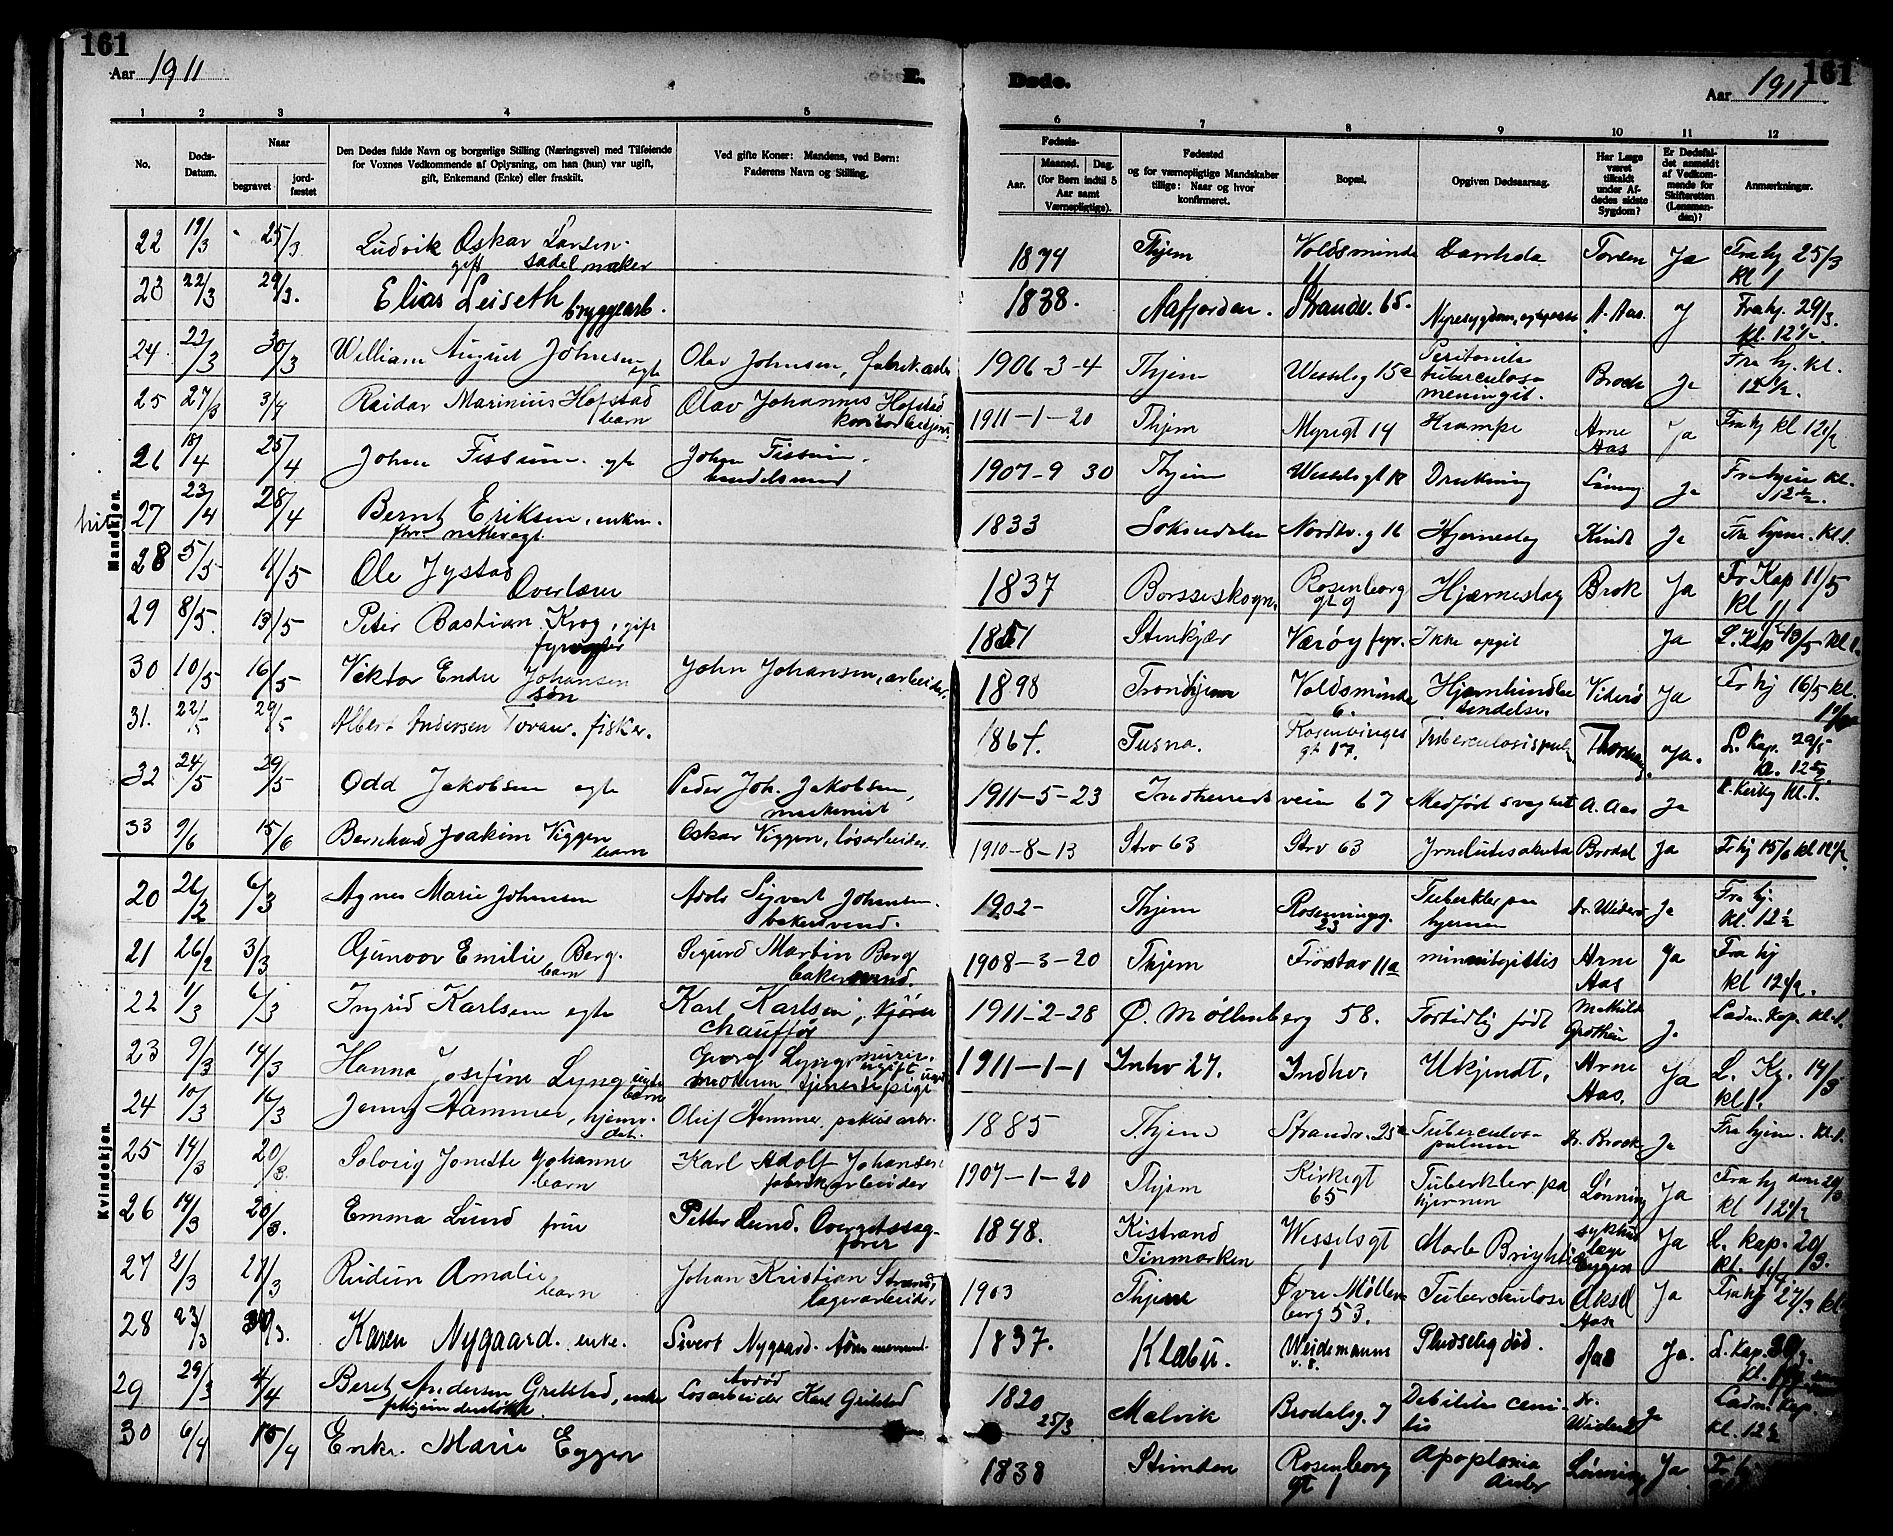 161
Aar 1911
E.
Døde.
161
Aar 1911
1 2 3 4 5 6 7 8 9 10 11 12
No.
Døds-Datum.
Naar
begravet
jord-fæstet
Den Dødes fulde Navn og borgerlige Stilling (Næringsvei) med Tilføiende
for Voxnes Vedkommende af Oplysning, om han (hun) var ugift,
gift, Enkemand (Enke) eller fraskilt.
Ved gifte Koner: Mandens, ved Børn:
Faderens Navn og Stilling.
Fødsels-
Aar.
Maaned. Dag.
(for Børn indtil 5
Aar samt
Værnepligtige).
Fødested
og for værnepligtige Mandskaber
tillige: Naar og hvor
konfirmeret.
Bopæl.
Opgiven Dødsaarsag.
Har Læge
været
tilkaldt
under Af-
dødes sidste
Sygdom?
Er Dødsfal-
det anmeldt
af Vedkom-
mende for
Skifteretten
(Lensman-
den)?
Anmærkninger.
Mandkjøn.
22 19/3 25/3 Ludvik Oskar Larsen 1874 Thjem Voldsminde Ja Fra hj 25/3
gift sadelmaker kl 1
23 22/3 29/3. Elias Leiseth bryggearb. 1838. Aafjorden. Strandv. 65. A. Aas. J Fra hj. 29/3.
kl. 12 1/2
24. 22/3 30/3 William August Johnsen Olav Johnsen, fabrikarb 1906-3-4 Thjem Wesselsg 15a Peritonitis Brock Ja Fra hj. kl.
egte tuberculosa 12 1/2.
meningit.
25 27/3 3/4 Reidar Marinius Hofstad Olav Johannes Hofstad 1911-1-20 Thjem Myregt 14 Krampe Arne Ja Fra hj kl 12 1/2
barn kontorbetjent Aas
26 18/4 25/4 Johan Fissum egte Johan Fissum. 1907-9 30 Thjem Wesselsgt Drukning Ja Fra hjem kl.
handelsmand 12 1/2.
27 23/4 28/4 Bernt Eriksen, enkem. 1833 Soknedalen Nordtv. g 16 Hjerneslag Kindt Ja Fra hjem. kl 1.
nattevagt.
28 5/5 11/5 Ole Jystad 1837 Borsseskogn. Rosenborg Hjærneslag Brok Ja Fr Kap 11/5
Overlærer gt 9 kl 11
29 8/5. 13/5 Peter Bastian Krog, gift 1851 Stenkjær Værøy fyr. Ikke opgit Ja L. Kap 13/5 kl 1.
fyrvogter
30 10/5 16/5 Viktor Endre Johansen John Johansen, arbeider. 1898 Trondhjem Voldsminde Hjærnhindebe Viderö Ja Fr hj 16/5 kl.
søn 6. tendelse.
31. 22/5 29/5 Albert Andersen fisker. 1864. Tusna. ja. L. Kap. 29/5
gt 17. kl. 12 1/2.
32 24/5 29/5 Odd Jakobsen egte Peder Joh. Jakobsen, 1911-5-23 Indherredsveien 67 Medfødt svaghet A. Aas Ja kl. 1.
maskinist
33 9/6 15/6 Bernhard Joakim Viggen Oskar Viggen, løsarbeider. 1910-8-13 Strv 63 Strv 63 Brodal Ja Fr hj 15/6 kl 12 1/2
barn
Kvindekjøn.
20 26/2 6/3 Agnes Marie Johansen Adolf Sigvart Johansen. 1902- Thjem Tuberkler paa Ja Fra hj.
bakersvend. 23 hjernen kl. 12 1/2
21 26/2 3/3 Gunvor Emilie Berg. Sigurd Martin Berg 1908-3-20 Thjem Frostav 11a Arne Ja Fra hj
barn bakersvend. Aas kl 12 1/2.
22 1/3 6/3 Ingrid Karlsen egte Karl Karlsen, kjører 1911-2-28 Ø. Møllenberg 58. Fortidlig født Mathilde Ja Ladm. Kap. kl. 1.
chauffør
23 9/3 14/3 Hanna Josefine Lyng uegte Georg Lyng murer. 1911-1-1 Inhv 27. Indhv. Ukjendt. Arne Ja L. Kp. 14/3
barn moderen tjenestepige Aas. kl 1.
24 10/3 16/3 Jenny Hammer, hjemv. Oluf Hammer, pakhusarb. 1885 Thjem Strandv. 25a Tuberculosa Dr. Brock Ja Fra hjem. kl. 1.
dat. pulmon
25 14/3 20/3. Solveig Jonette Johanne Karl Adolf Johansen 1907-1-20 Thjem Kirkegt Tuberkler pa Lønning Ja Fra hj den 20/3
barn fabrikarbeider 65 hjernen kl 12 1/2
26 14/3 20/3. Emma Lund frue Petter Lund. Overretssag- 1848. Kistrand Wesselsgt Ja L. Kap. 20/3.
fører Finmarken 1 kl.
27 21/3 27/3 Amalie Johan Kristian Strand, 1903 Thjem Øvre Møllen Tuberchulose Aksel Ja Fra hj 27/3 kl
barn lagerarbeider berg 53. Aas
28 23/3 Karen Nygaard. enke. Sivert Nygaard. tømmermand. 1837. Klæbu. Weidemanns Pludselig død. Aas Ja. L. Kap.
v. 8.
29 29/3 4/4 Beret Andersen Grilstad, enke Løsarbeider Karl Grilstad 1820 Malvik Brodalsg. 7 Debilitas ceni- Dr. Ja Ladm. Kap.
25/3 lis kl. 12 1/2
30 6/4 15/4 Enke. Marie Eggen 1838 Stimden Rosenborg Lønning Ja Fr hj
gt 1